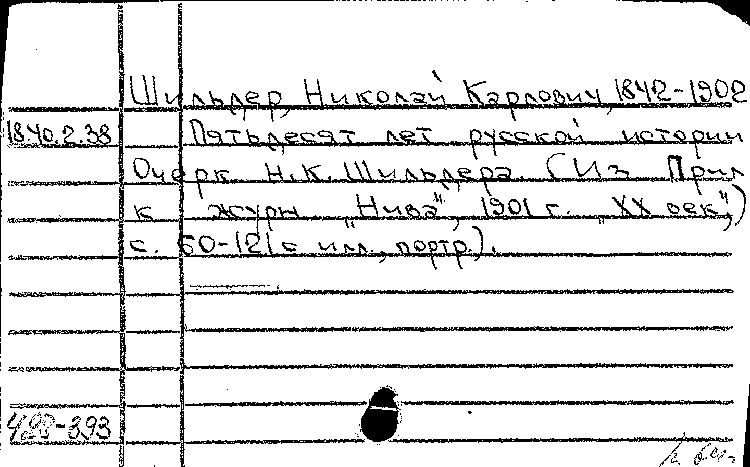 Шильдер, Николай Карлович, 1842-1902
1840.2.38 Пятьдесят лет русской истории
Очерк Н.К. Шильдера. (Из Прил
к журн „Нива", 1901 г. „XX век",)
с. 60-121 с илл., портр.).
-893